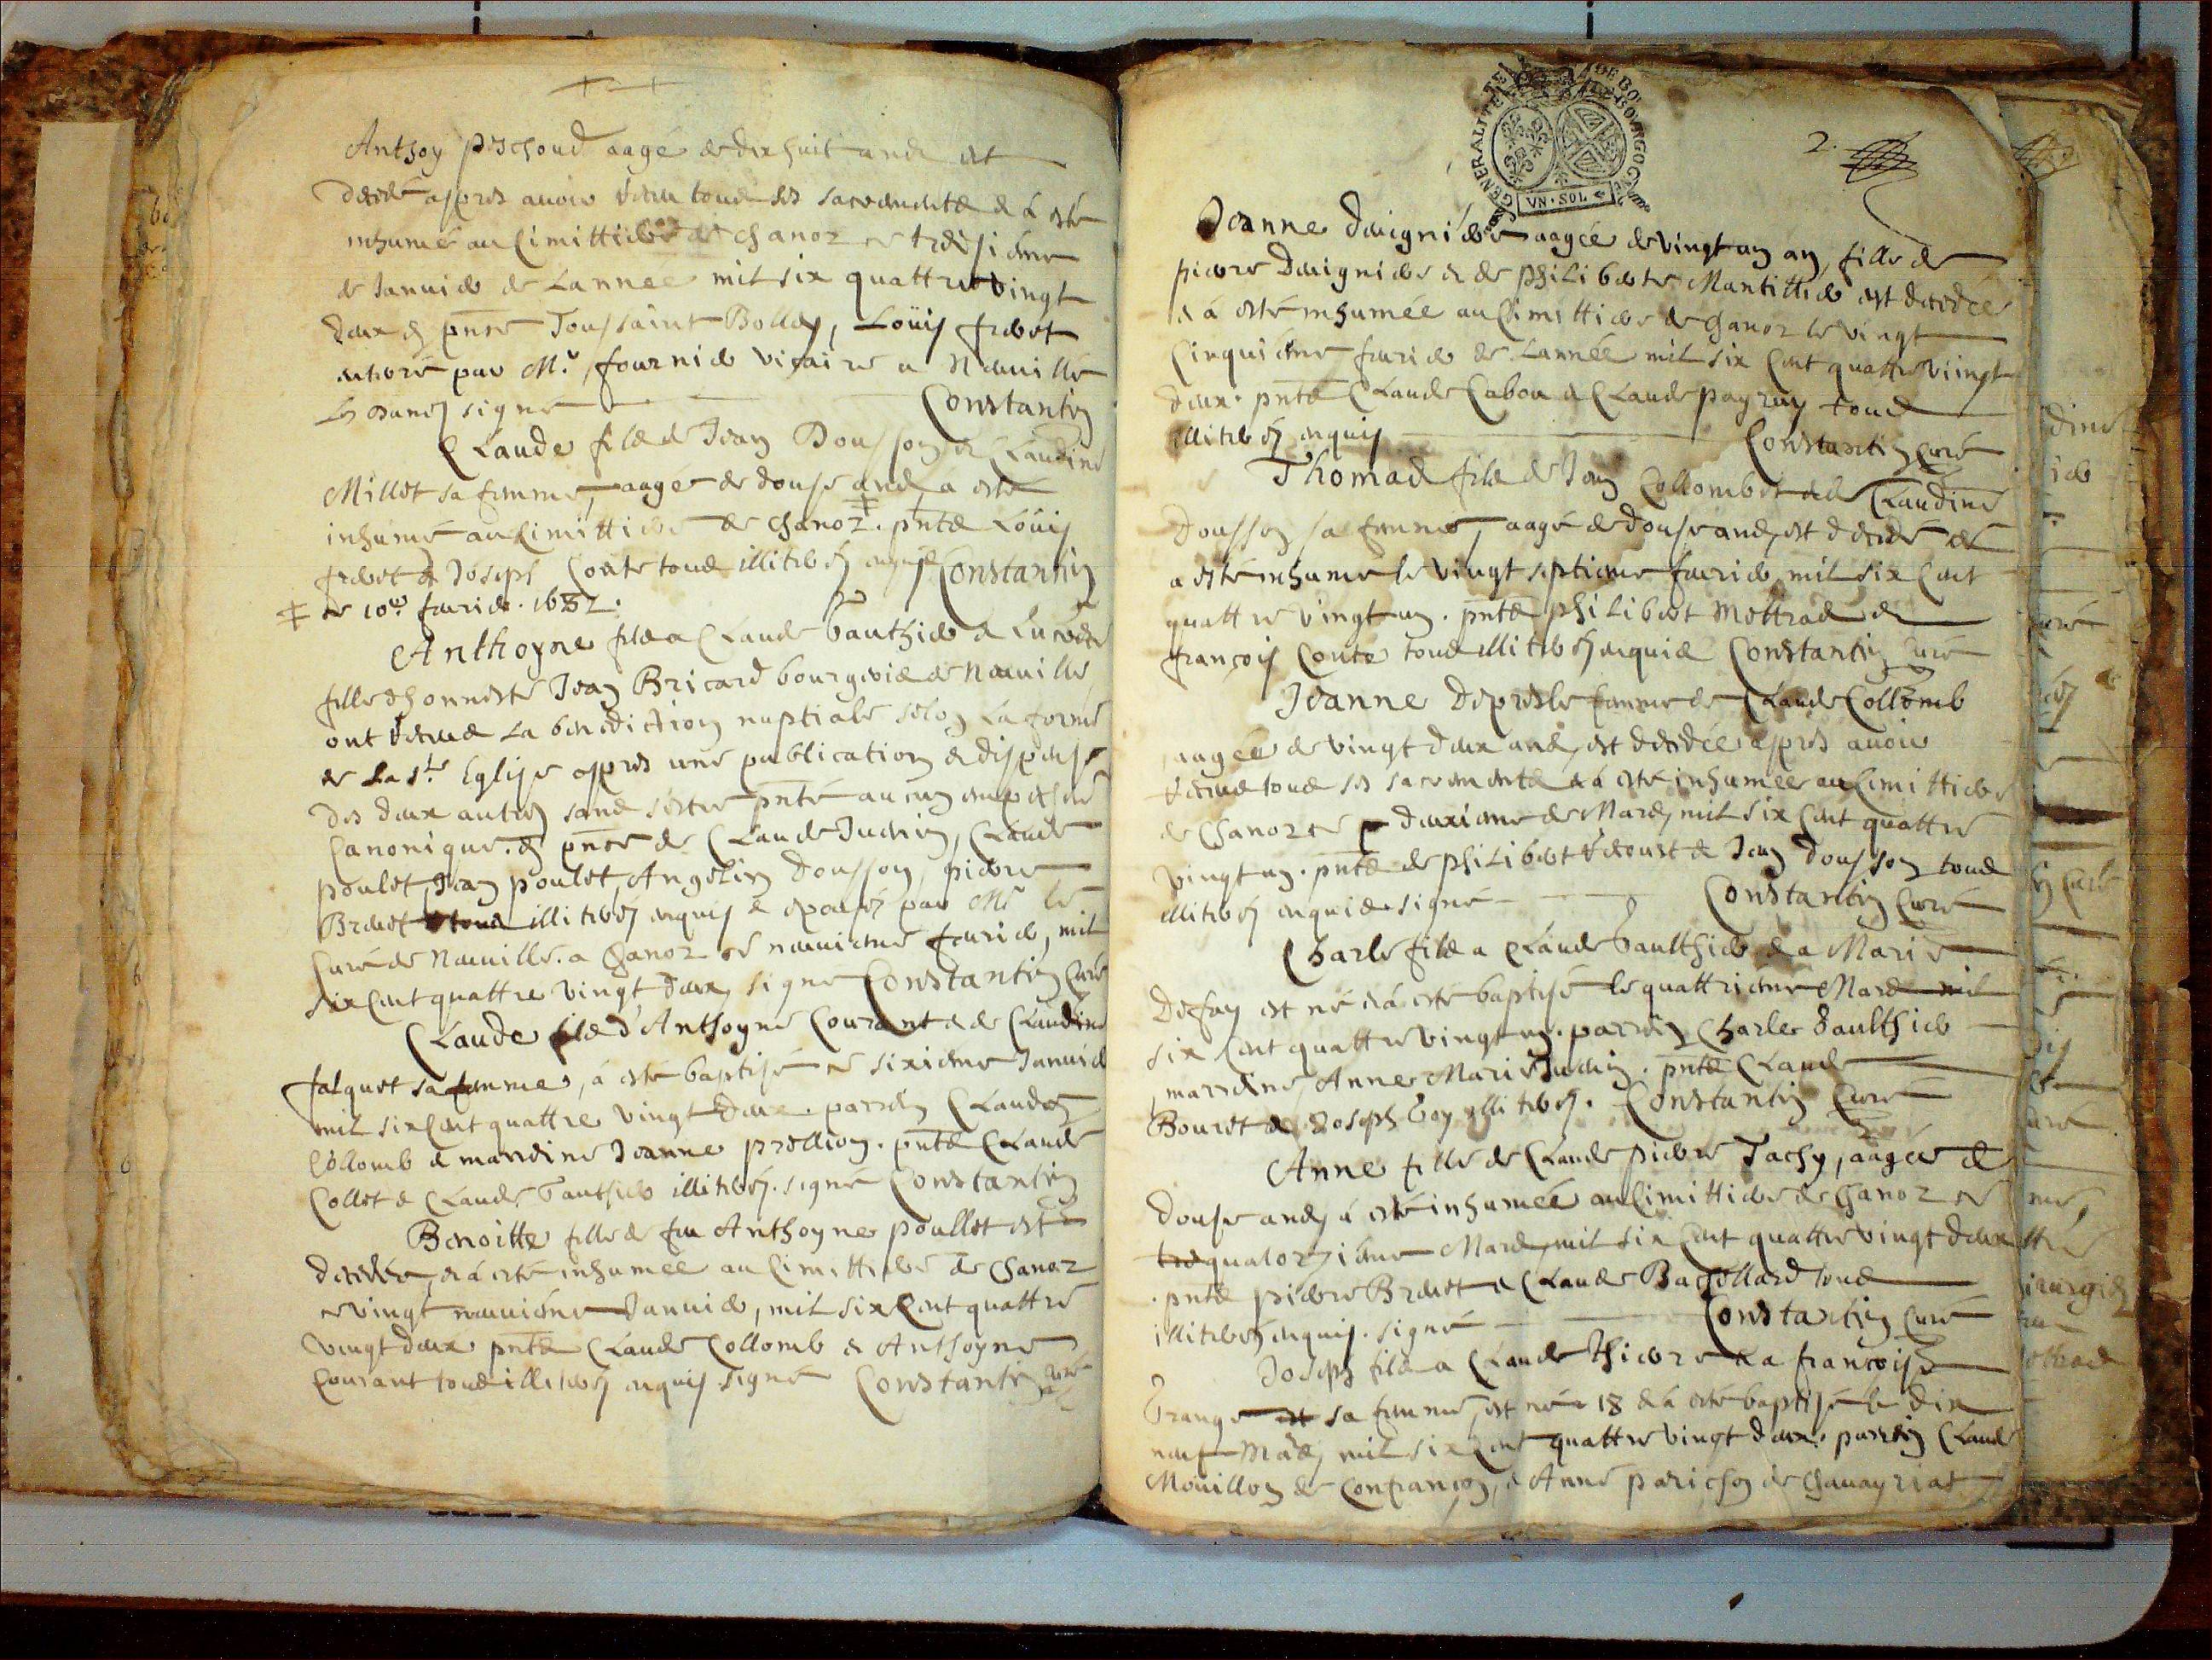 Anthoy aagé de dix huit ans est
decedé apres avoir receu tous ses sacrements & a esté
inhumé au Cimittiere de Chanoz ce treisieme
de Januier de Lannee mil six quattre vingt
deux en pnce Toussaint Bolley, Loüis freret
enterré par Mr. fournier vicaire a Neuuille
signé Constantin
Claude fils de Jean Dousson & Claudine
Millet sa femme, aagé de douse ans, a esté
inhumé au Cimittiere de Chanoz ‡. pnts Loüis
freret & Joseph Conte tous illiterés enquis Constantin
‡ ce 10e feurier. 1682.
Anthoyne fils a Claude Gauthier & Lucresse
fille dhonneste Jean Bricard bourgeois de Neuuille
ont receus La benediction nuptiale selon La forme
de La ste Eglise apres une publication & dispense
des deux autres sans sestre pnté aucun empeschet
Canonique. en pnce de Claude Juenin, Claude
poulet, Jean poulet, Angelin Dousson, pierre
Breuet tous illiterés enquis & epousés par Mr le
Curé de Neuuille. a Chanoz ce neuuieme feurier, mil
six Cent quattre vingt deux, signé Constantin Curé
Claude fils d'Anthoyne Courant & de Claudine
falquet sa femme, a esté baptisé ce sixieme Januier
mil six Cent quattre vingt deux. parrein Claude
Collomb & marreine Jeanne prellion. pnts Claude
Collet & Claude Gauthier illiterés. signé Constantin
Benoitte fille de feu Anthoyne poullet est
decedée, & a esté inhumée au Cimittiere de Chanoz
ce vingt neuuiéme Januier, mil six Cent quattre
vingt deux pnts Claude Collomb & Anthoyne
Courant tous illiterés enquis signé Constantin Curé
GENERALITE DE BOURGOGNE
VN·SOL
2.
Jeanne Deuigniere aagée de vingt un an, fille de
pierre Deuigniere & de philiberte Mantillier est decedée
& a esté inhumée au Cimittiere de Chanoz le vingt
Cinquieme feurier de Lannée mil six Cent quattre viingt
deux. pnts Claude Cabou & Claude tous
illiterés enquis Constantin Curé
Thomas fils de Jean Collombet & de Claudine
Dousson sa femme, aagé de douse ans, est decedé &
a esté inhumé le vingt septieme feurier mil six Cent
quattre vingt un. pnts philibert Mottrad &
françois Conte tous illiterés enquis Constantin Curé
Jeanne Depresle femme de Claude Collomb
aagée de vingt deux ans, est decedée apres auoir
receus tous ses sacrements & a esté inhumée au Cimittiere
de Chanoz ce deuxieme de Mars, mil six Cent quattre
vingt un. pnts de philibert & Jean Dousson tous
illiterés enquis signé Constantin Curé
Charle fils a Claude Gaulthier & a Marie
Defay est né & a esté baptisé le quattrieme Mars mil
six Cent quattre vingt un. parrein Charle Gaulthier
marreine, Anne Marie Juenin. pnts Claude
Bouret & Joseph Goy illiterés. Constantin Curé
Anne fille de Claude pierre Tachy, aagée de
douse ans, a esté inhumée au Cimittiere de Chanoz ce
quatorzieme Mars, mil six Cent quattre vingt deux
pnts pierre Breuet & Claude Bagollard tous
illiterés enquis. signé Constantin Curé
Joseph fils a Claude Thieure & a françoise
Grange est sa femme, est né 18 & a esté baptisé le dix
neuf Mars, mil six Cent quattre vingt deux. parrein Claude
Mouillon de Confrançon, & Anne parichon de Chauayriat